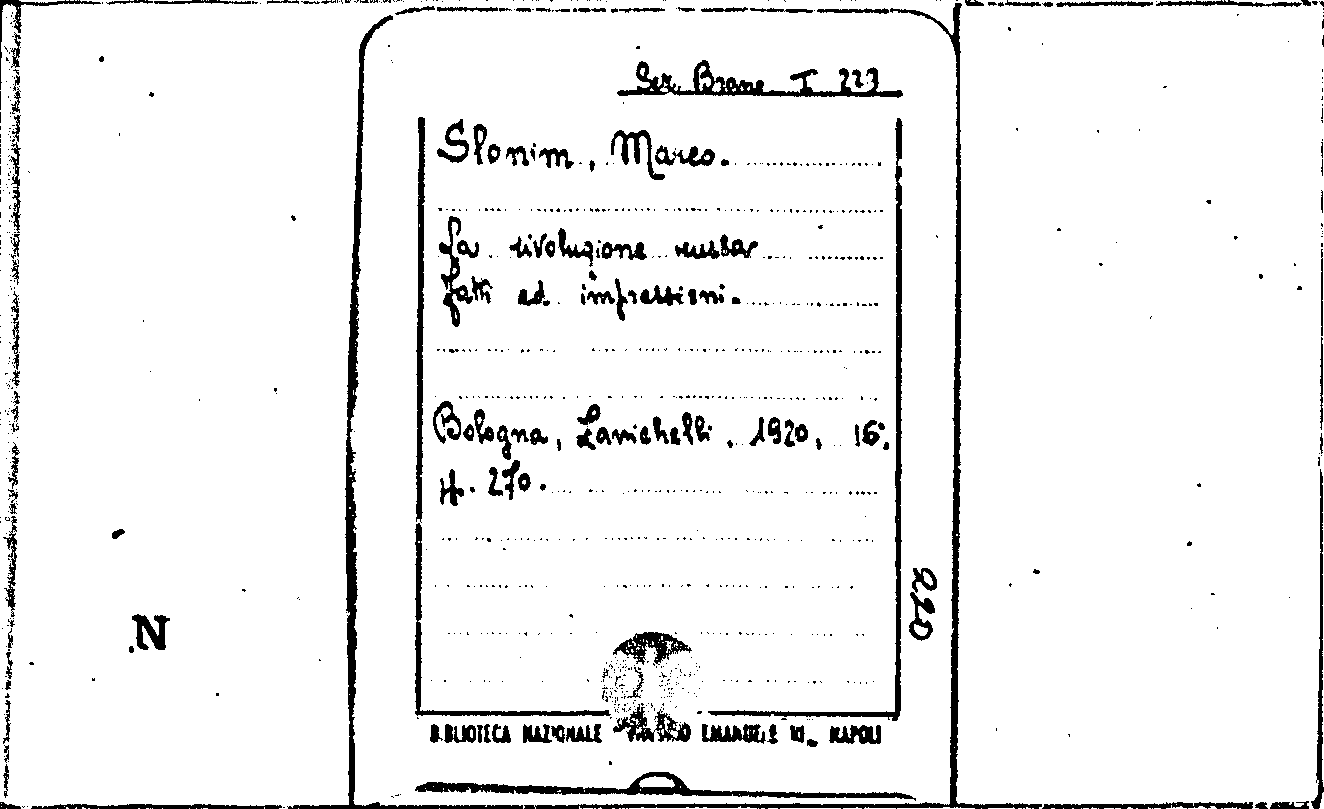 Sez. Branc. I 223
Slonim, Marco.
La rivoluzione russa
fatti ed impressioni.
Bologna, Zanichelli, 1920, 16°.
pp. 270.
220
N
BIBLIOTECA NAZIONALE VITTORIO EMANUELE III - NAPOLI